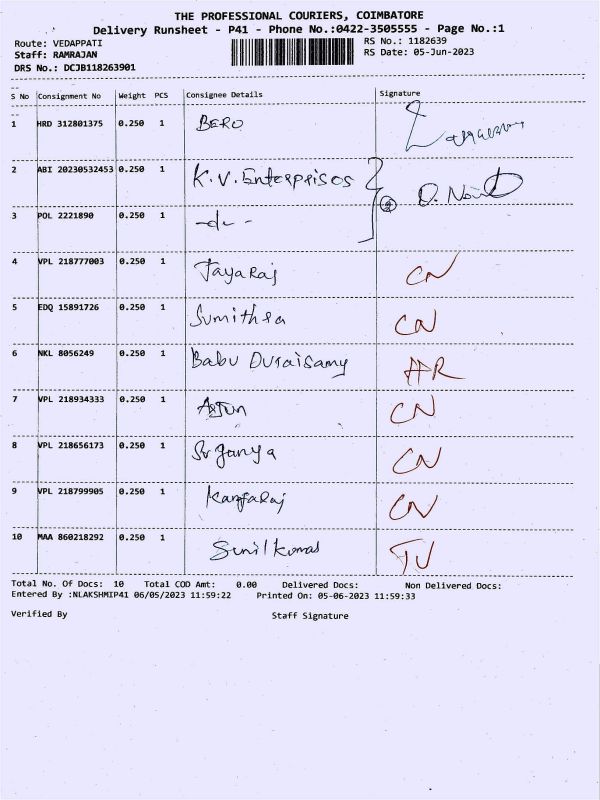 THE PROFESSIONAL COURIERS, COIMBATORE
Delivery Runsheet - P41 - Phone No.:0422-3505555 - Page No.:1
Route: VEDAPPATI RS No.: 1182639
Staff: RAMRAJAN RS Date: 05-Jun-2023
DRS No.: DCJB118263901
S No Consignment No Weight PCS Consignee Details Signature
1 HRD 312801375 0.250 1 BERO
2 ABI 20230532453 0.250 1 K.V. Enterprises
3 POL 2221890 0.250 1 -do-
4 VPL 218777003 0.250 1 Jayaraj CN
5 EDQ 15891726 0.250 1 Sumithra CN
6 NKL 8056249 0.250 1 Babu Duraisamy AR
7 VPL 218934333 0.250 1 Arjun CN
8 VPL 218656173 0.250 1 CN
9 VPL 218799905 0.250 1 Kangaraj CN
10 MAA 860218292 0.250 1 Sunil Kumar TU
Total No. Of Docs: 10 Total COD Amt: 0.00 Delivered Docs: Non Delivered Docs:
Entered By :NLAKSHMIP41 06/05/2023 11:59:22 Printed On: 05-06-2023 11:59:33
Verified By Staff Signature